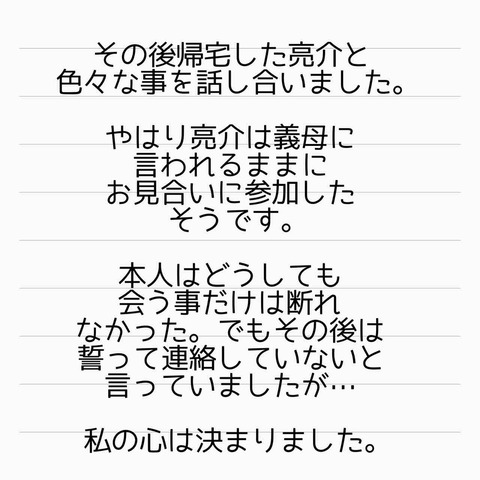 その後帰宅した亮介と
色々な事を話し合いました。
やはり亮介は義母に
言われるままに
お見合いに参加した
そうです。
本人はどうしても
会う事だけは断れ
なかった。でもその後は
誓って連絡していないと
言っていましたが…
私の心は決まりました。